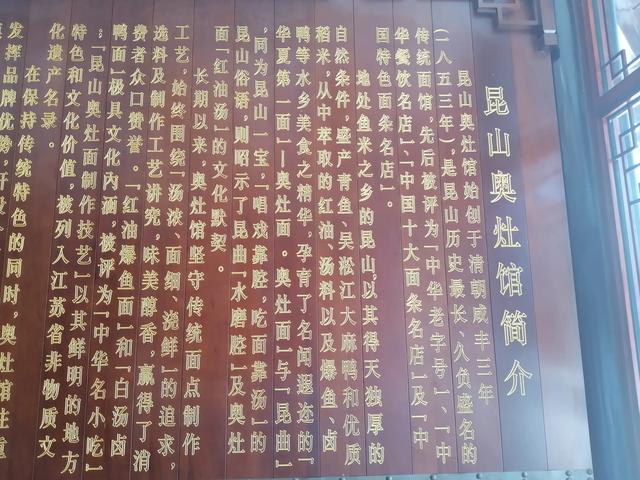 昆山奥灶馆简介
昆山奥灶馆始创于清朝咸丰三年
(一八五三年),是昆山历史最长、久负盛名的
传统面馆,先后被评为「中华老字号」、「中
华餐饮名店」「中国十大面条名店」及「中
国特色面条名店」。
地处鱼米之乡的昆山,以其得天独厚的
自然条件,盛产青鱼、吴淞江大麻鸭和优质
稻米,从中萃取的红油、汤料以及爆鱼、卤
鸭等水乡美食之精华,孕育了名闻遐迩的「
华夏第一面」—奥灶面。奥灶面」与「昆曲」
,同为昆山一宝,「唱戏靠腔,吃面靠汤」的
昆山俗语,则昭示了昆曲「水磨腔」及奥灶
面「红油汤」的文化默契。
长期以来,奥灶馆坚守传统面点制作
工艺,始终围绕「汤浓、面细、浇鲜」的追求,
选料及制作工艺讲究,味美醇香,赢得了消
费者众口赞誉。「红油爆鱼面」和「白汤卤
鸭面」极具文化内涵,被评为「中华名小吃」
;「昆山奥灶面制作技艺」以其鲜明的地方
特色和文化价值,被列入江苏省非物质文
化遗产名录。
在保持传统特色的同时,奥灶馆注重
发挥品牌优势,